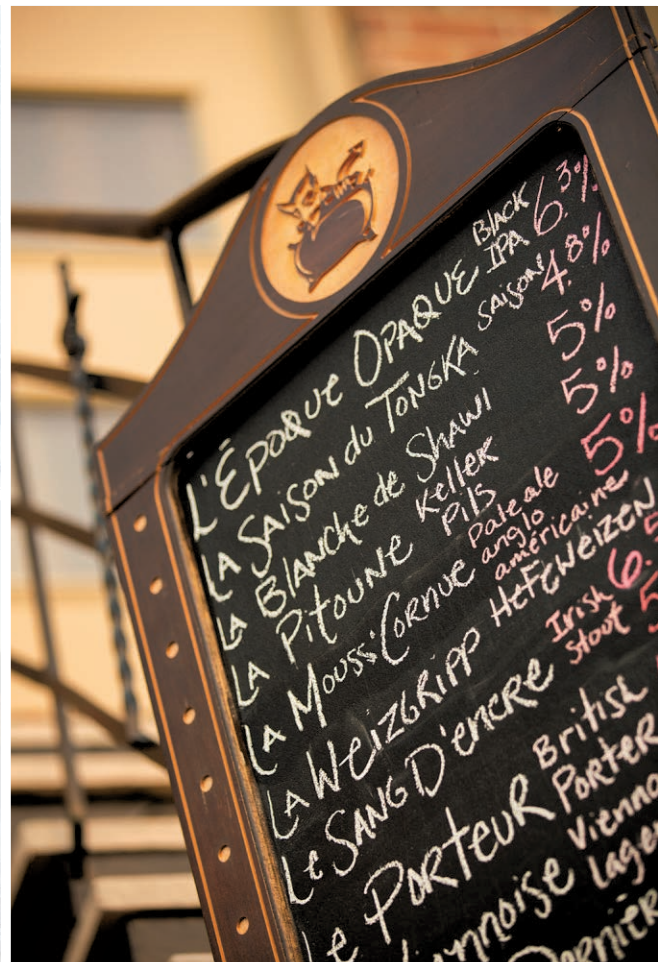 L'ÉPOQUE OPAQUE BLACK IPA 6.3%
LA SAISON du TONGKA SAISON 4.8%
LA BLANCHE de SHAWI 5%
LA PITOUNE Keller PILS 5%
LA MOUSS'CORNUE Pale ale anglo américaine 5%
LA WEIZGRIPP HEFEWEIZEN
Le SANG D'encre Irish Stout
Le PORTEUR British PORTER
Lager